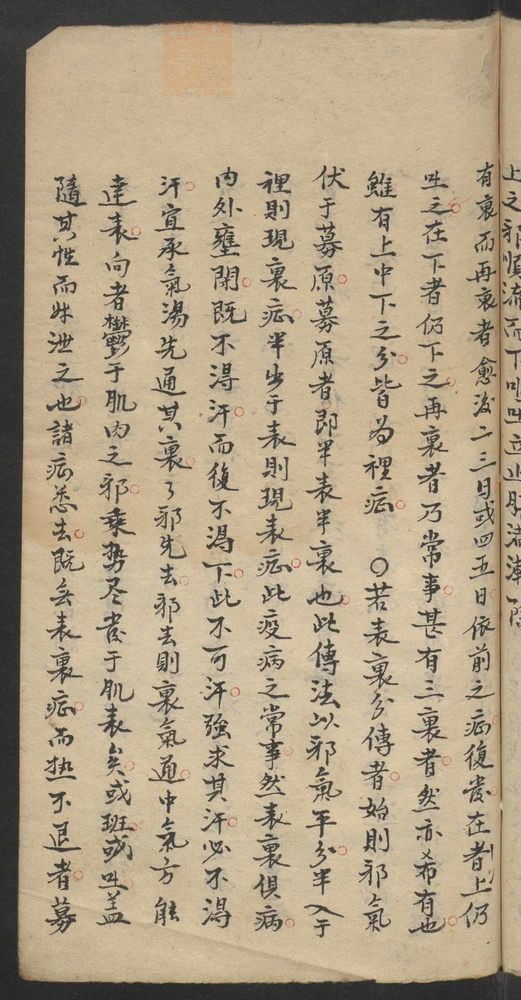 上之邪順流而下
有裏而再裏者愈後二三日或四五日依前之症復發在者上仍
吐之在下者仍下之再裏者乃常事甚有三裏者然亦希有也
雖有上中下之分皆為裡症 〇若表裏分傳者始則邪氣
伏于募原募原者即半表半裏也此傳法以邪氣平分半入于
裡則現裏症半出于表則現表症此疫病之常事然表裏俱病
内外壅閉既不淂汗而復不淂下此不可汗強求其汗必不淂
汗宜承氣湯先通其裏了邪先去邪去則裏氣通中氣方能
達表向者鬱于肌肉之邪乘勢尽發于肌表矣或斑或吐盖
隨其性而外泄之也諸症悉去既無表裏症而热不退者募